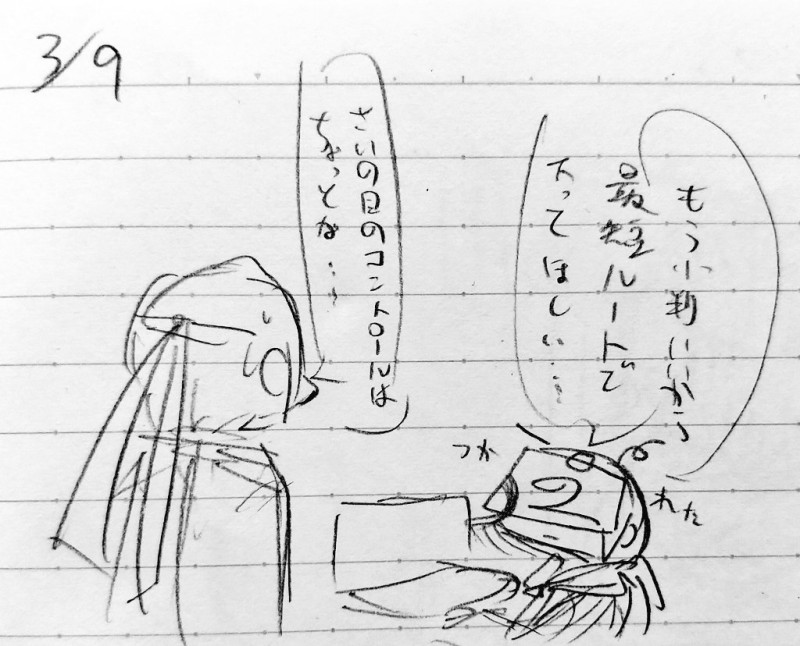 3/9
もう小判いいから
最短ルートで
下ってほしい…
さいの目のコントロールは
ちょっとな…
つか
れた